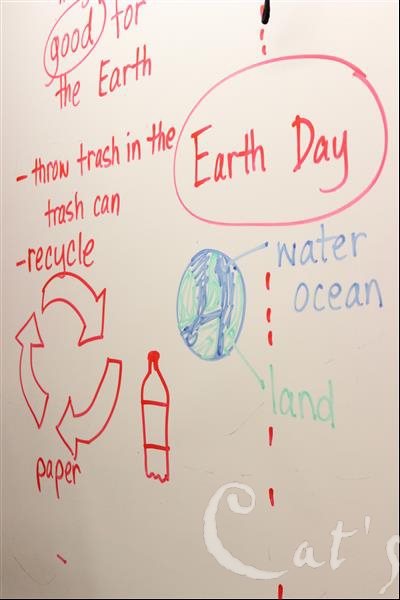 good for
the Earth
- throw trash in the
trash can
- recycle
paper
Earth Day
water
ocean
land
Cat's